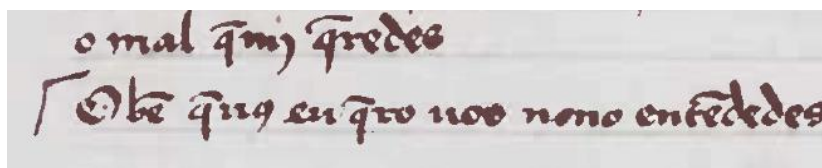 o mal q̄ mj q̄redes
Obē q̄ uꝯ eu q̄ro uos nono entēdedes